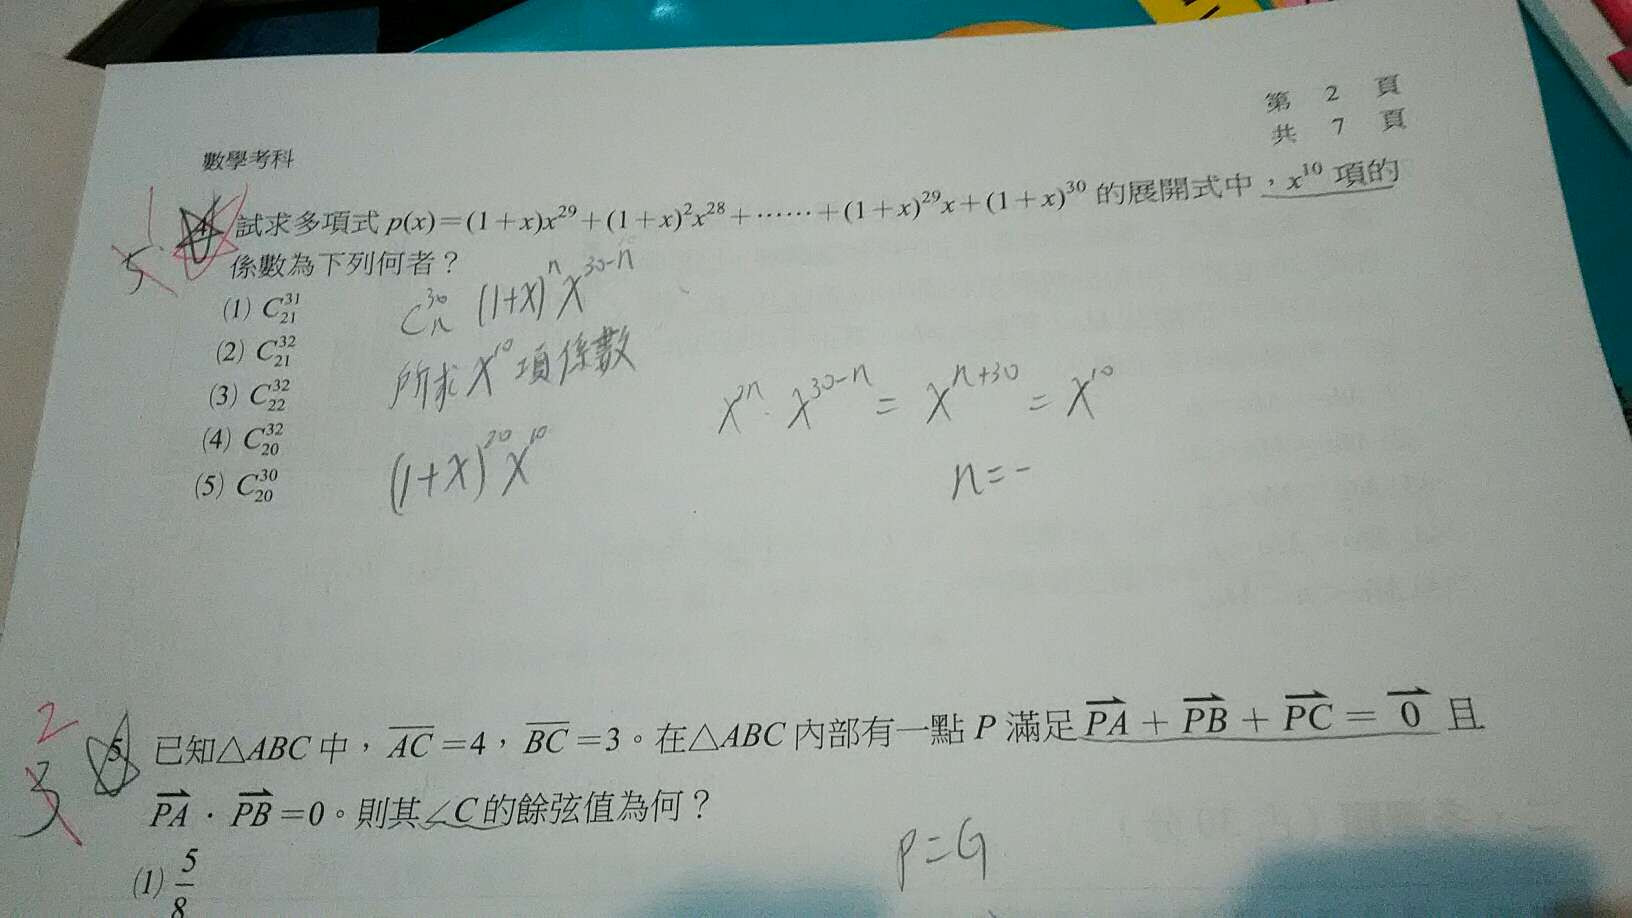 第 2 頁
共 7 頁
數學考科
1
5
4. 試求多項式 p(x)=(1+x)x²⁹+(1+x)²x²⁸+⋯⋯+(1+x)²⁹x+(1+x)³⁰ 的展開式中，x¹⁰ 項的
係數為下列何者？
(1) C³¹₂₁
(2) C³²₂₁
(3) C³²₂₂
(4) C³²₂₀
(5) C³⁰₂₀
C³⁰ₙ (1+x)ⁿ x³⁰⁻ⁿ
所求 x¹⁰ 項係數
(1+x)²⁰ x¹⁰
x²ⁿ · x³⁰⁻ⁿ = xⁿ⁺³⁰ = x¹⁰
n = -
2
3
5. 已知△ABC 中，A̅C̅=4，B̅C̅=3。在△ABC 內部有一點 P 滿足 P⃗A⃗ + P⃗B⃗ + P⃗C⃗ = 0⃗ 且
P⃗A⃗ · P⃗B⃗ =0。則其∠C 的餘弦值為何？
P=G
(1) 5/8